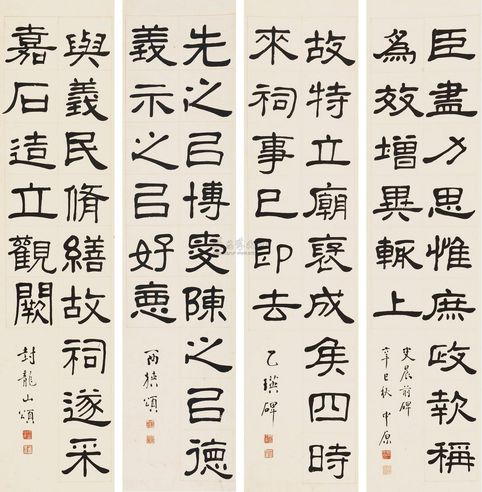 臣盡力思惟庶政報稱
為效增異輒上
史晨前碑
辛巳秋 中原
故特立廟褒成侯四時
來祠事已即去
乙瑛碑
先之㠯博愛陳之㠯德
義示之㠯好惡
西狹頌
與義民脩繕故祠遂采
嘉石造立觀闕
封龍山頌